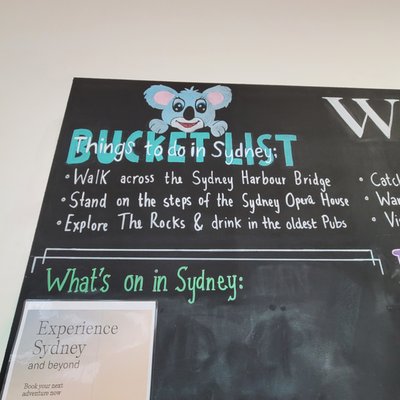 BUCKET LIST
Things to do in Sydney;
• Walk across the Sydney Harbour Bridge
• Stand on the steps of the Sydney Opera House
• Explore The Rocks & drink in the oldest Pubs
What's on in Sydney:
Experience
Sydney
and beyond
Book your next
adventure now
W
• Catc
• Wa
• Vi